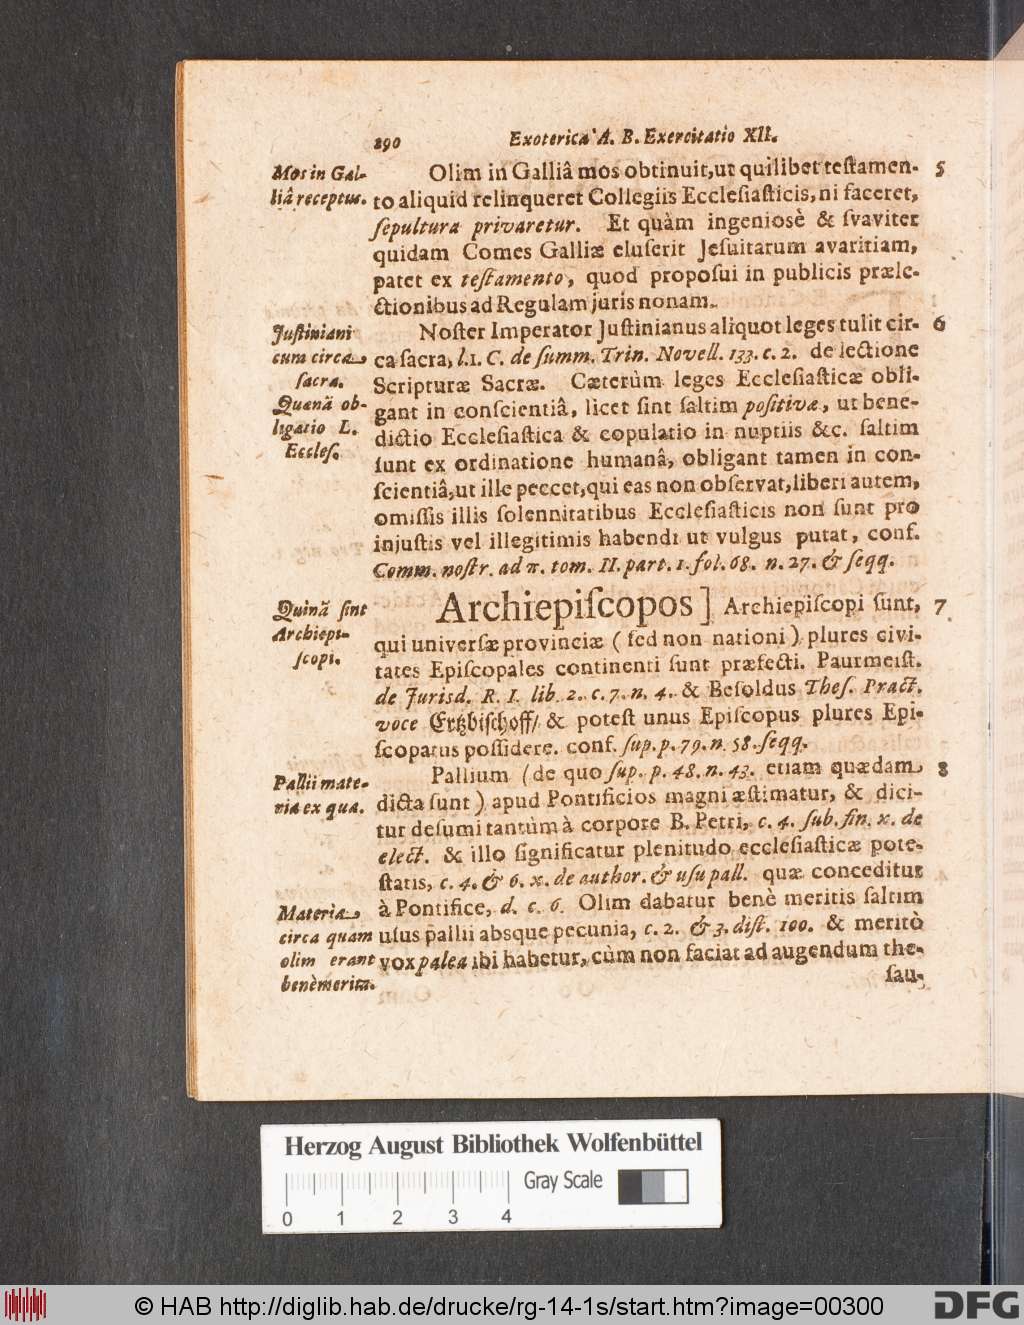 290 Exoterica A. B. Exercitatio XII.
Mos in Gal-
liâ receptus.
Olim in Galliâ mos obtinuit, ut quilibet teſtamen- 5
to aliquid relinqueret Collegiis Eccleſiaſticis, ni faceret,
ſepultura privaretur. Et quàm ingeniosè & ſvaviter
quidam Comes Galliæ eluſerit Jeſuitarum avaritiam,
patet ex teſtamento, quod propoſui in publicis præle-
ctionibus ad Regulam juris nonam.
Juſtiniani
cura circa
ſacra.
Quænã ob-
ligatio L.
Eccleſ.
Noſter Imperator Juſtinianus aliquot leges tulit cir- 6
ca ſacra, l. 1. C. de ſumm. Trin. Novell. 133. c. 2. de lectione
Scripturæ Sacræ. Cæterùm leges Eccleſiaſticæ obli-
gant in conſcientiâ, licet ſint ſaltim poſitivæ, ut bene-
dictio Eccleſiaſtica & copulatio in nuptiis &c. ſaltim
ſunt ex ordinatione humanâ, obligant tamen in con-
ſcientiâ, ut ille peccet, qui eas non obſervat, liberi autem,
omiſſis illis ſolennitatibus Eccleſiaſticis non ſunt pro
injuſtis vel illegitimis habendi ut vulgus putat, conf.
Comm. noſtr. ad π. tom. II. part. 1. fol. 68. n. 27. & ſeqq.
Quinã ſint
Archiepi-
ſcopi.
Archiepiſcopos] Archiepiſcopi ſunt, 7
qui univerſæ provinciæ (ſed non nationi) plures civi-
tates Epiſcopales continenti ſunt præfecti. Paurmeiſt.
de Jurisd. R. I. lib. 2. c. 7. n. 4. & Beſoldus Theſ. Pract.
voce Ertzbiſchoff/ & poteſt unus Epiſcopus plures Epi-
ſcopatus poſſidere. conf. ſup. p. 79. n. 58. ſeqq.
Pallii mate-
ria ex qua.
Pallium (de quo ſup. p. 48. n. 43. etiam quædam 8
dicta ſunt) apud Pontificios magni æſtimatur, & dici-
tur deſumi tantùm à corpore B. Petri, c. 4. ſub. fin. x. de
elect. & illo ſignificatur plenitudo eccleſiaſticæ pote-
ſtatis, c. 4. & 6. x. de author. & uſu pall. quæ conceditur
à Pontifice, d. c. 6. Olim dabatur benè meritis ſaltim
uſus pallii absque pecunia, c. 2. & 3. diſt. 100. & meritò
vox palea ibi habetur, cùm non faciat ad augendum the-
ſau-
Materia
circa quam
olim erant
benèmerita.
Herzog August Bibliothek Wolfenbüttel
Gray Scale
0 1 2 3 4
© HAB http://diglib.hab.de/drucke/rg-14-1s/start.htm?image=00300
DFG